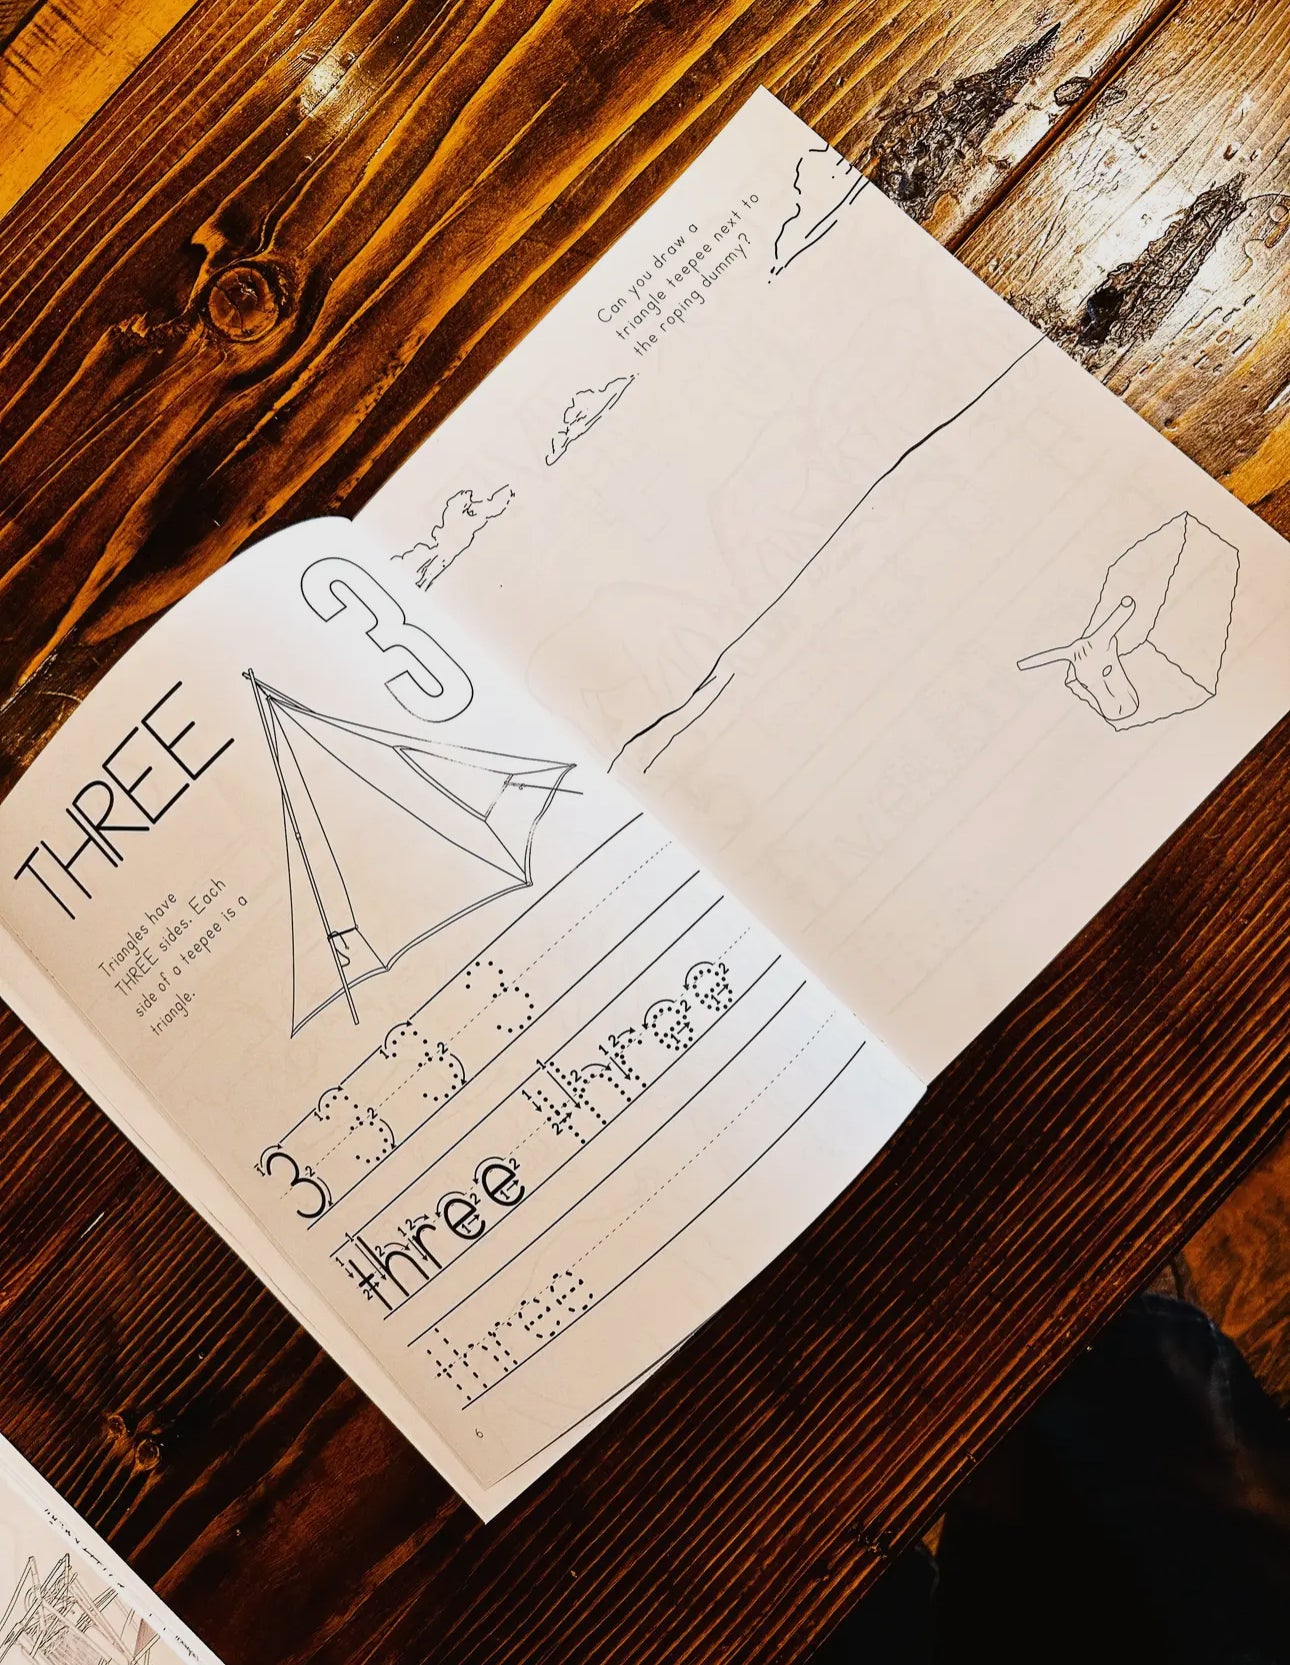 3
THREE
Triangles have
THREE sides. Each
side of a teepee is a
triangle.
3 3 3 3
three three
three
6
Can you draw a
triangle teepee next to
the roping dummy?